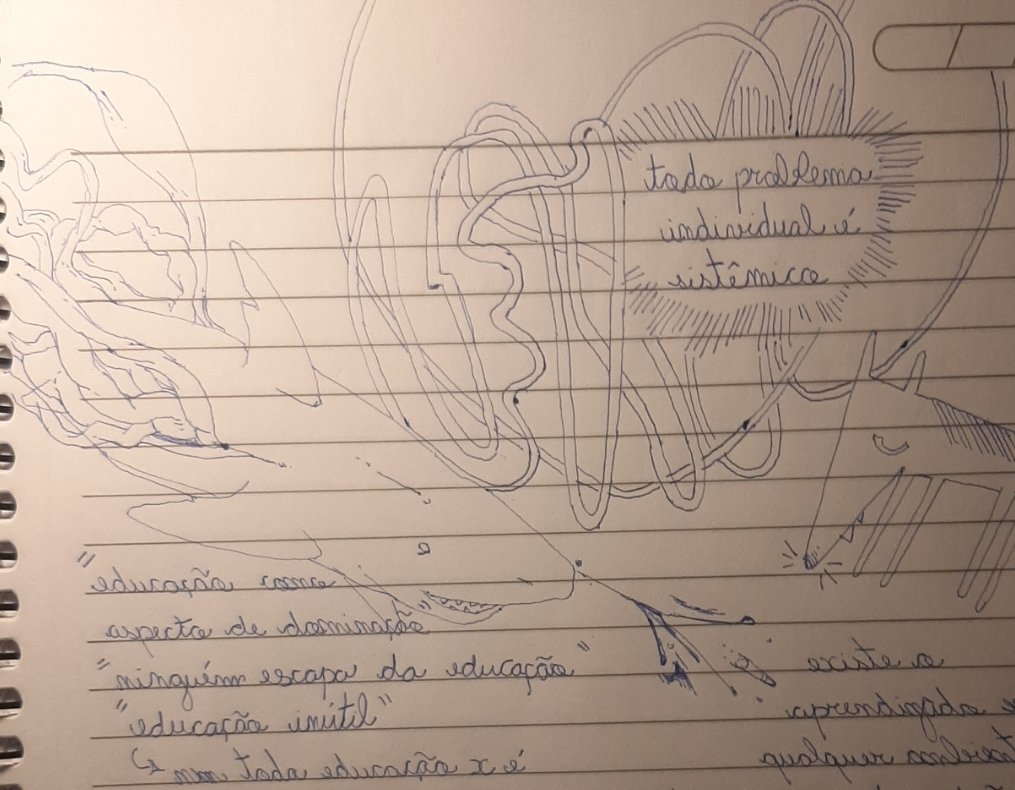 todo problema
individual é
sistêmico
"educação como
aspecto de dominação"
"ninguém escapa da educação"
"educação inútil"
↳ nem toda educação x é
existe o
aprendizado
qualquer ambient